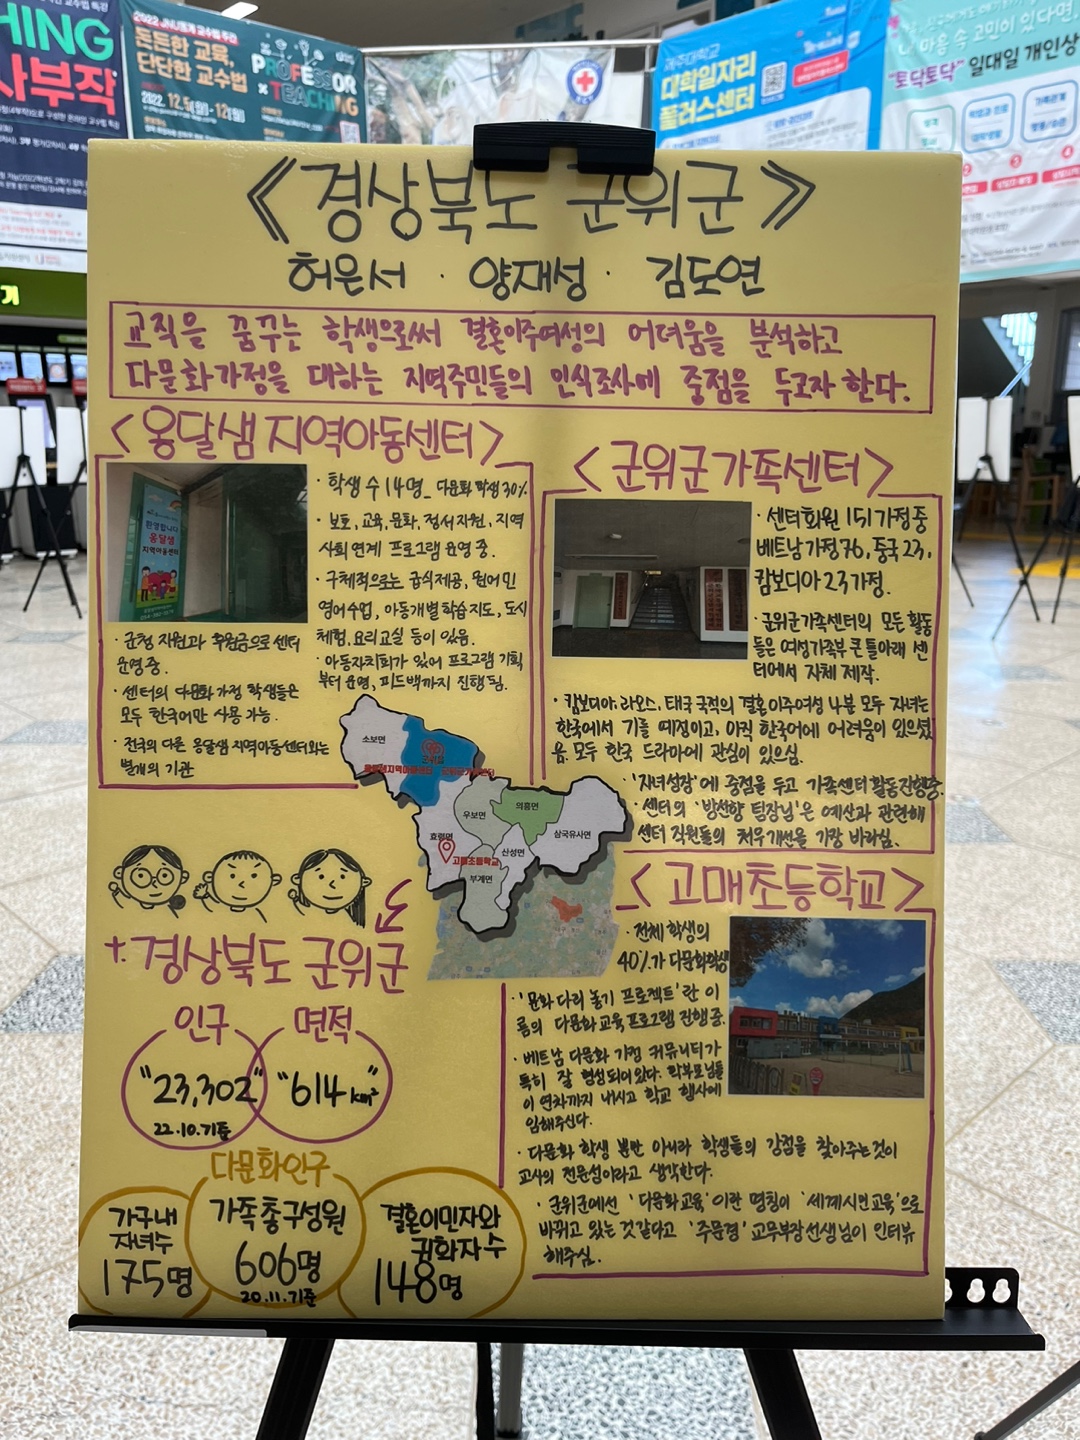 HING
사부작
2022 JNU동계 교수법 주간
든든한 교육,
단단한 교수법
PROFESSOR
× TEACHING
2022. 12.5(월) - 12
제주대학교
대학일자리
플러스센터
내 마음 속 고민이 있다면,
"토닥토닥" 일대일 개인상
기
《경상북도 군위군》
허은서 · 양재성 · 김도연
교직을 꿈꾸는 학생으로써 결혼이주여성의 어려움을 분석하고
다문화가정을 대하는 지역주민들의 인식조사에 중점을 두고자 한다.
<옹달샘 지역아동센터>
환영합니다
옹달샘
지역아동센터
· 학생 수 14명_ 다문화 학생 30%
· 보호, 교육, 문화, 정서지원, 지역
사회 연계 프로그램 운영 중.
· 구체적으로는 급식제공, 원어민
영어수업, 아동개별학습지도, 도시
체험, 요리교실 등이 있음.
· 아동자치회가 있어 프로그램 기획
부터 운영, 피드백까지 진행 됨.
· 군청 지원과 후원금으로 센터
운영 중.
· 센터의 다문화 가정 학생들은
모두 한국어만 사용 가능.
· 전국의 다른 옹달샘 지역아동센터와는
별개의 기관
<군위군가족센터>
· 센터회원 151가정 중
베트남가정 76, 중국 23,
캄보디아 23가정.
· 군위군가족센터의 모든 활동
들은 여성가족부 큰 틀아래 센
터에서 자체 제작.
· 캄보디아, 라오스, 태국 국적의 결혼이주여성 4분 모두 자녀는
한국에서 기를 예정이고, 아직 한국어에 어려움이 있으셨
음. 모두 한국 드라마에 관심이 있으심.
· '자녀성장'에 중점을 두고 가족센터 활동진행중.
· 센터의 '방선향 팀장님'은 예산과 관련해
센터 직원들의 처우개선을 가장 바라심.
소보면
군위읍
우보면
의흥면
효령면
산성면
삼국유사면
고매초등학교
부계면
<고매초등학교>
· 전체 학생의
40%가 다문화학생
· '문화 다리 놓기 프로젝트'란 이
름의 다문화 교육프로그램 진행중.
· 베트남 다문화 가정 커뮤니티가
특히 잘 형성되어있다. 학부모님들
이 연차까지 내시고 학교 행사에
임해주신다.
· 다문화 학생 뿐만 아니라 학생들의 강점을 찾아주는것이
교사의 전문성이라고 생각한다.
· 군위군에선 '다문화교육'이란 명칭이 '세계시민교육'으로
바뀌고 있는 것같다고 '주문경' 교무부장선생님이 인터뷰
해주심.
+. 경상북도 군위군
인구 면적
"23,302" "614㎢"
22.10.기준
다문화인구
가구내
자녀수
175명
가족총구성원
606명
20.11.기준
결혼이민자와
귀화자 수
148명